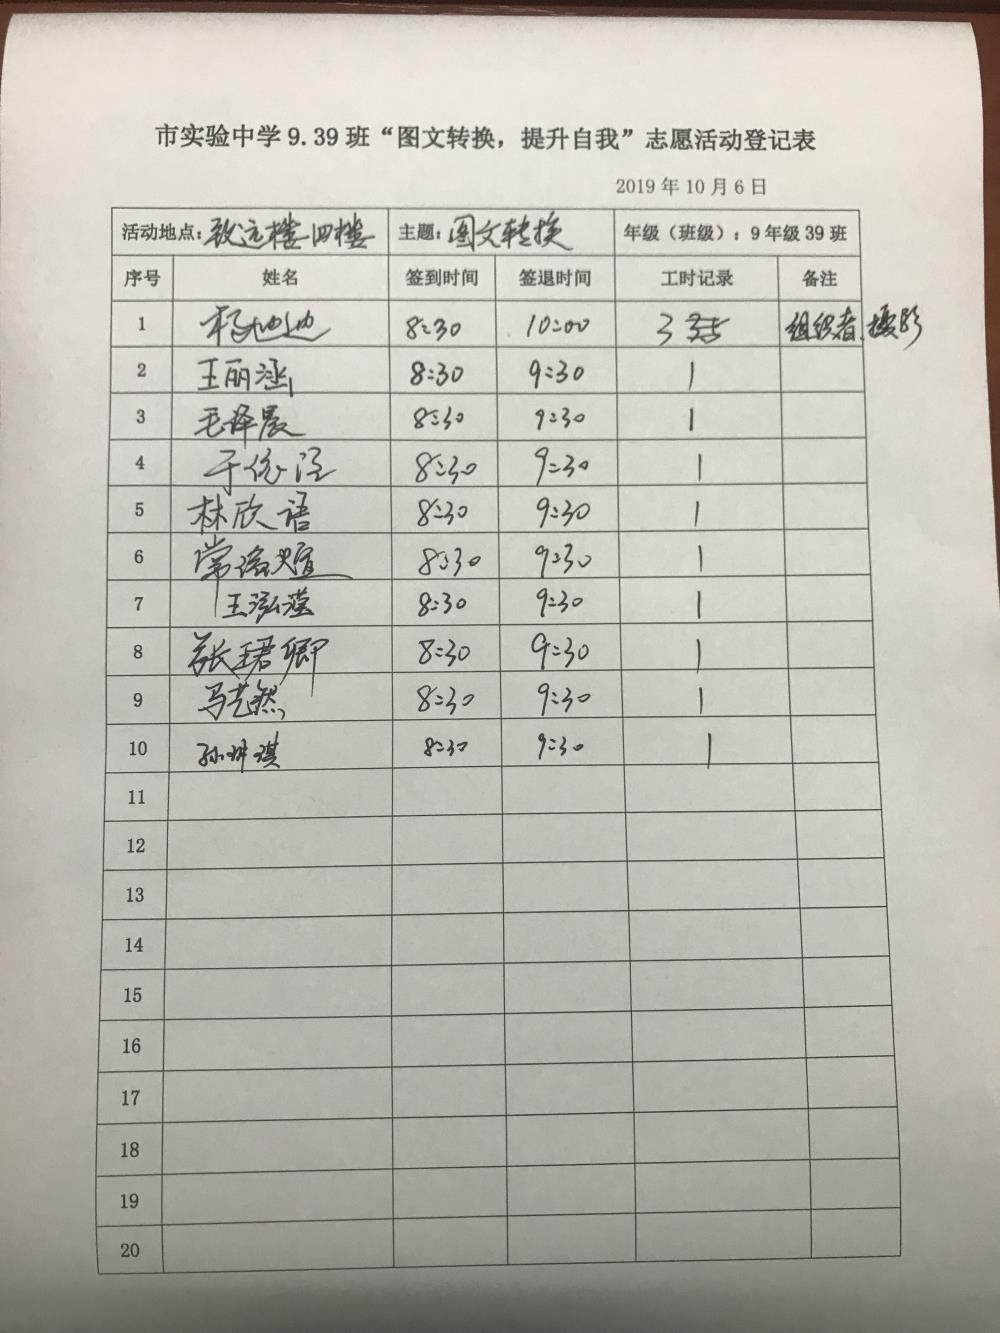 市实验中学9.39班“图文转换，提升自我”志愿活动登记表
2019年10月6日
活动地点：致远楼四楼 主题：图文转换 年级（班级）：9年级39班
序号 姓名 签到时间 签退时间 工时记录 备注
1 杨迪迪 8:30 10:00 3 组织者、摄影
2 王丽涵 8:30 9:30 1
3 毛泽晨 8:30 9:30 1
4 于依泾 8:30 9:30 1
5 林欣语 8:30 9:30 1
6 常 8:30 9:30 1
7 王泓滢 8:30 9:30 1
8 张珺卿 8:30 9:30 1
9 马艺然 8:30 9:30 1
10 孙琪 8:30 9:30 1
11
12
13
14
15
16
17
18
19
20